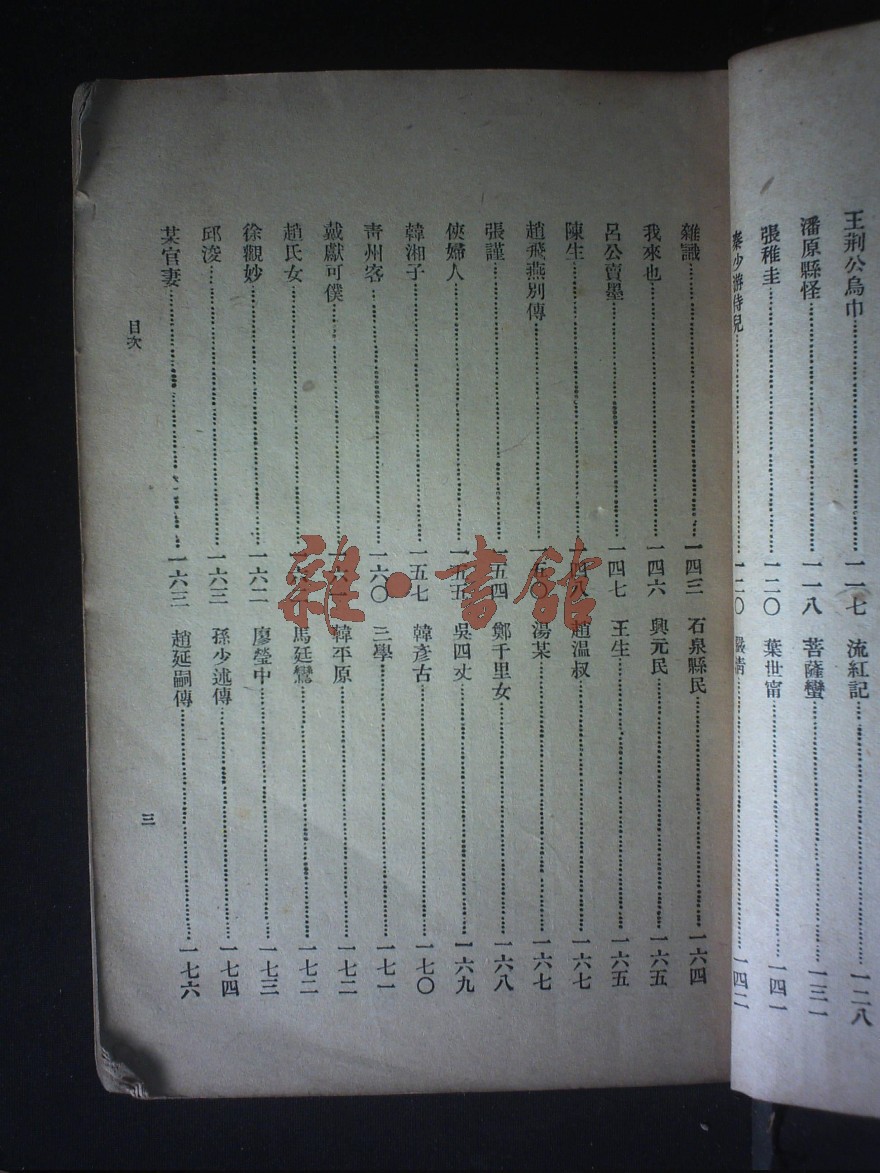 王荆公烏巾 一一七
潘原縣怪 一一八
張稚圭 一二〇
秦少游侍兒 一二〇
流紅記 一二八
菩薩蠻 一三一
葉世甯 一四一
一四二
雜識 一四三
我來也 一四六
呂公賣墨 一四七
陳生 一四八
趙飛燕別傳 一五〇
張謹 一五四
俠婦人 一五五
韓湘子 一五七
青州客 一六〇
戴獻可僕
趙氏女
徐觀妙 一六二
邱浚 一六三
某官妻 一六三
石泉縣民 一六四
興元民 一六五
王生 一六五
趙温叔 一六六
湯某 一六七
鄭千里女 一六八
吳四丈 一六九
韓彥古 一七〇
三學 一七一
韓平原 一七二
馬廷鸞 一七二
廖瑩中 一七三
孫少述傳 一七四
趙延嗣傳 一七六
目次
三
雜·書館